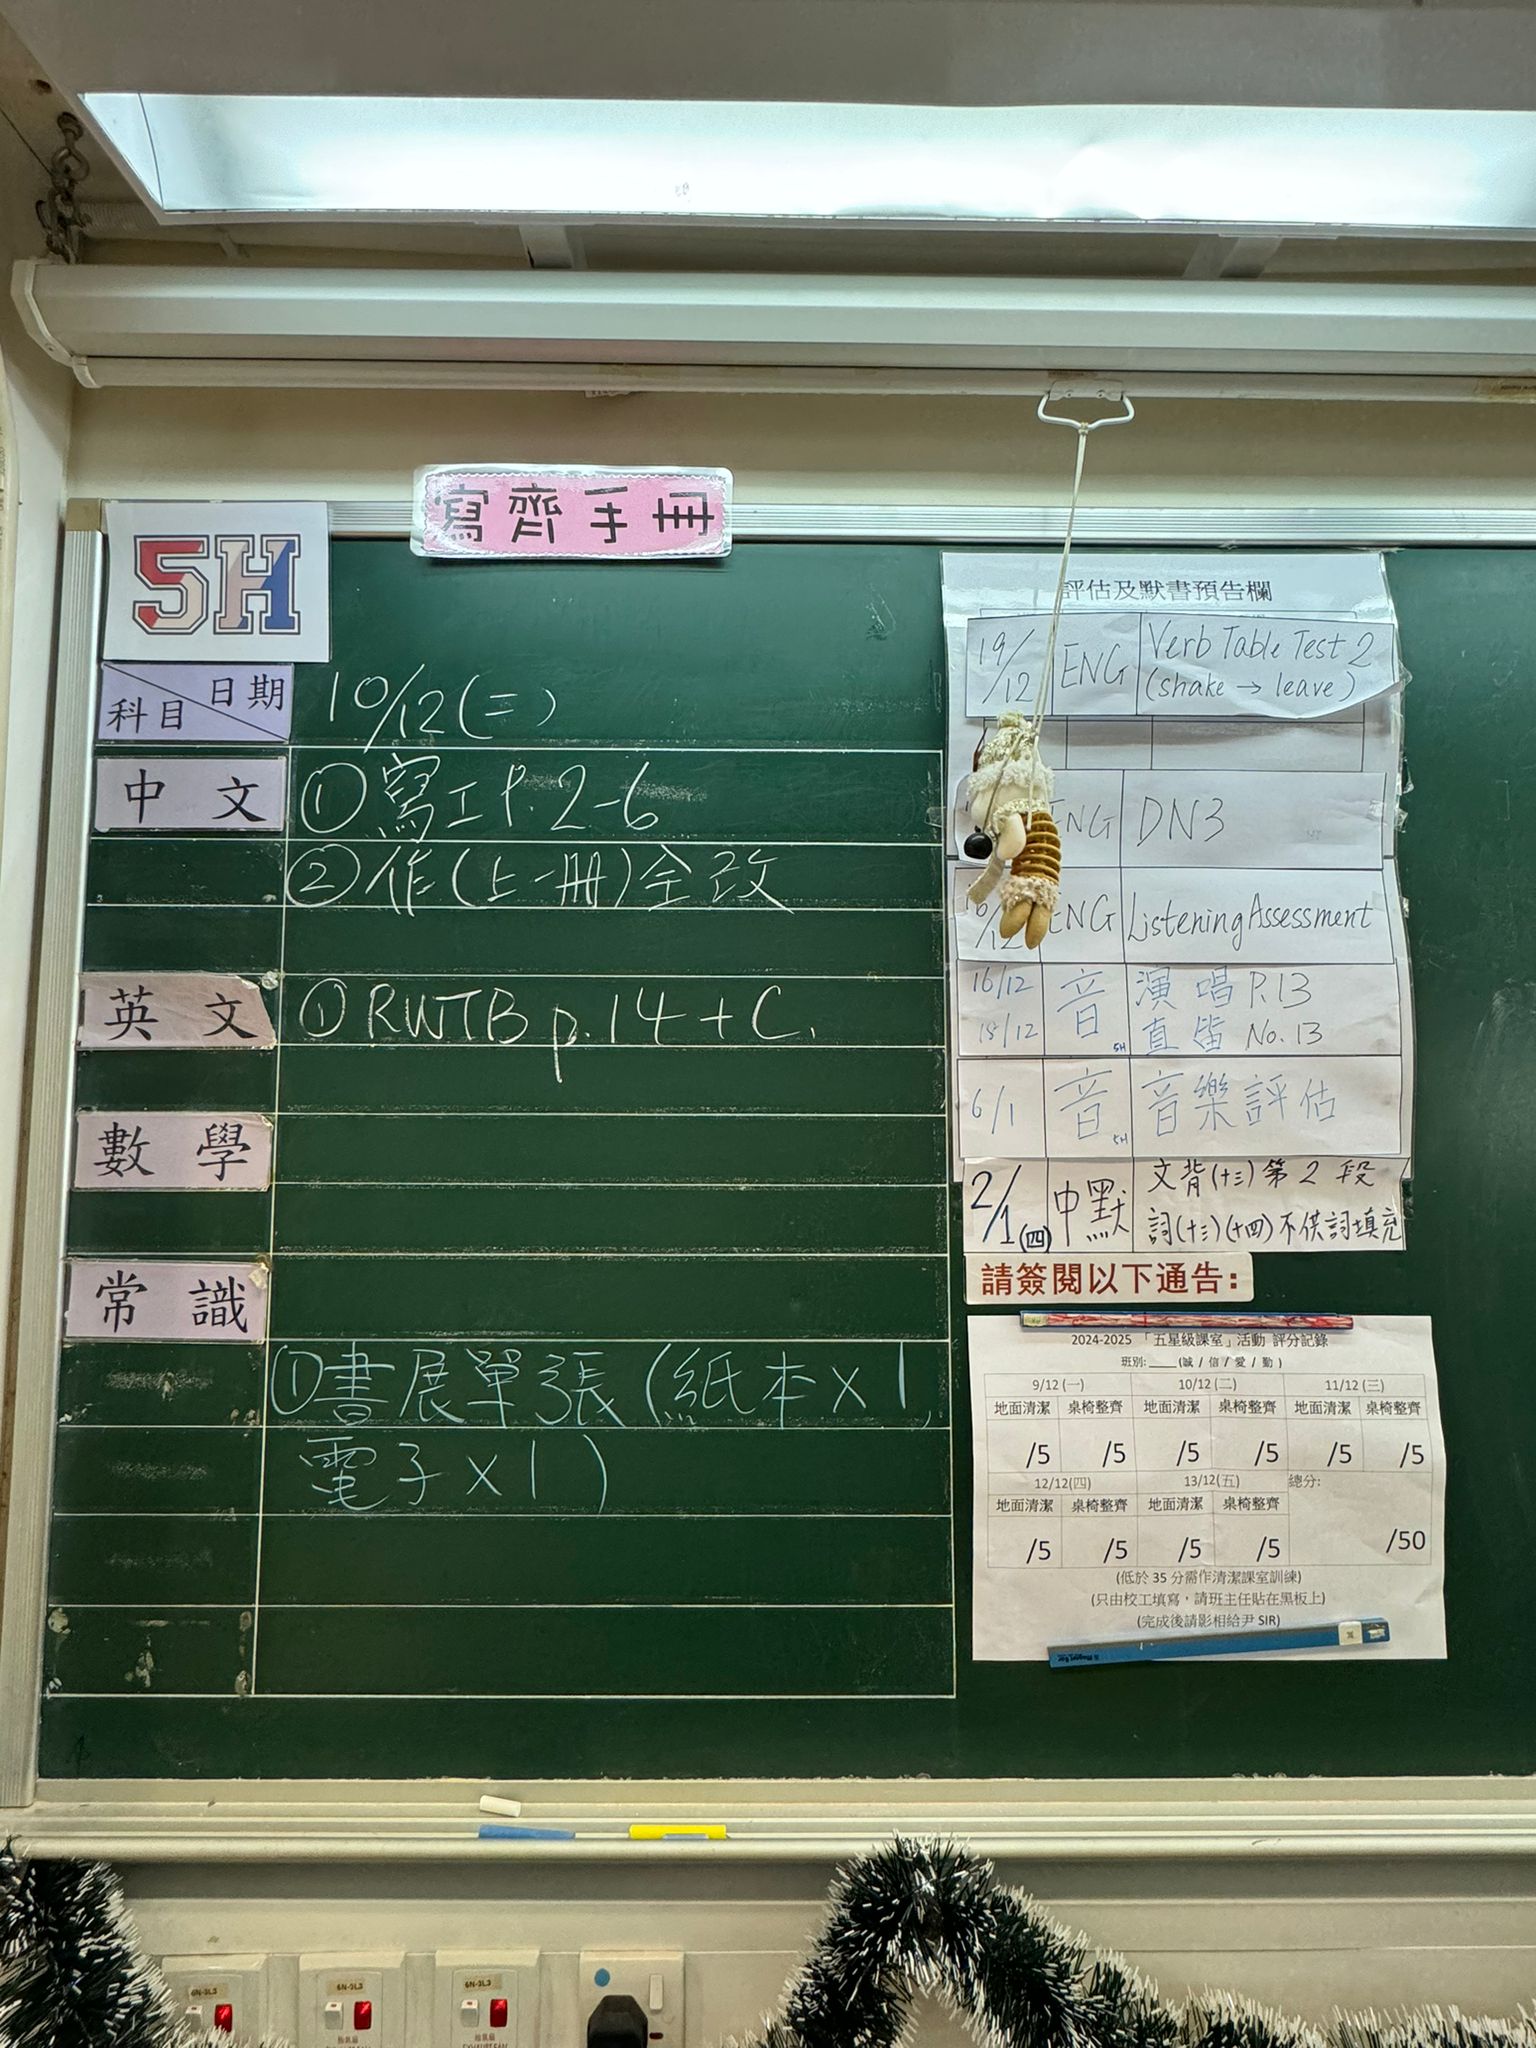 寫齊手冊
5H
日期
科目
10/12(二)
中文
①寫工P.2-6
②作(上一冊)全改
英文
①RWTB p.14 + C.
數學
常識
①書展單張(紙本x1,
電子x1)
評估及默書預告欄
19/12 ENG Verb Table Test 2
(shake → leave)
ENG DN3
/12 ENG Listening Assessment
16/12 音 演唱 P.13
18/12 5H 直笛 No.13
6/1 音 5H 音樂評估
2/1(四) 中默 文背(十三)第2段
詞(十三)(十四)不供詞填充
請簽閱以下通告:
2024-2025 「五星級課室」活動 評分記錄
班別:____(誠/信/愛/勤)
9/12(一) 10/12(二) 11/12(三)
地面清潔 桌椅整齊 地面清潔 桌椅整齊 地面清潔 桌椅整齊
/5 /5 /5 /5 /5 /5
12/12(四) 13/12(五) 總分:
地面清潔 桌椅整齊 地面清潔 桌椅整齊
/5 /5 /5 /5 /50
(低於 35 分需作清潔課室訓練)
(只由校工填寫，請班主任貼在黑板上)
(完成後請影相給尹 SIR)
6N-3L3 6N-3L3 6N-3L3